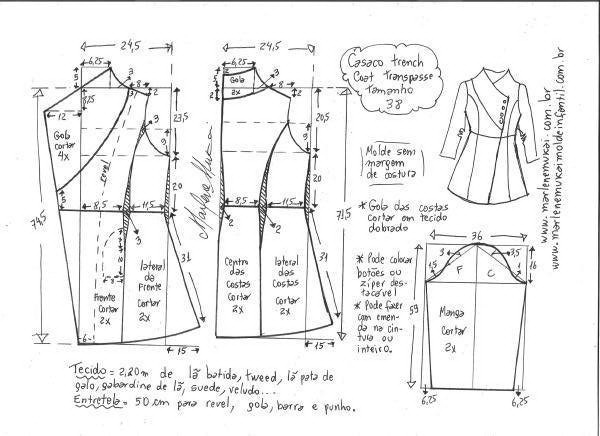 24,5
6,25
3
8
2
5
6,25
12
Gola
cortar
4x
revel
3
23,5
9
20
8,5
11,5
3
74,5
31
Frente
cortar
2x
lateral
da
Frente
cortar
2x
6
15
Marlene Mukai
24,5
6,25
3
2
Gola
2x
2
8
2
20,5
9
20
8,5
11,5
2
2
71,5
31
Centro
das
Costas
cortar
2x
lateral
das
Costas
Cortar
2x
15
Casaco trench
Coat transpasse
tamanho
38
Molde sem
margem
de costura
* Gola das costas
cortar em tecido
dobrado
* Pode colocar
botões ou
ziper des-
tacável
* Pode fazer
com emen-
da na cin-
tura ou
inteiro.
www.marlenemukai.com.br
www.marlenemukaimoldeinfantil.com.br
36
3
3,5
1,5
1
F
C
16
59
Manga
Cortar
2x
6,25
6,25
Tecido = 2,20m de lã batida, tweed, lã pata de
galo, gabardine de lã, suede, veludo...
Entretela = 50 cm para revel, gola, barra e punho.